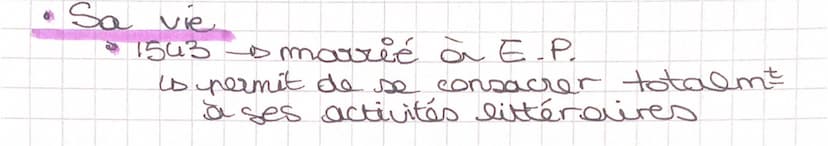 • Sa vie
• 1543 → marrié à E.P.
↳ permit de se consacrer totalmt
à ses activités littéraires